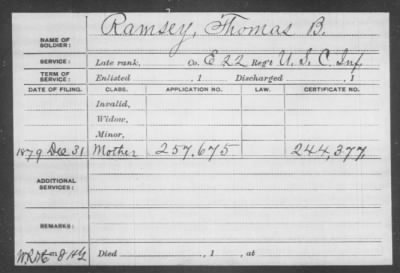 NAME OF SOLDIER: Ramsey, Thomas B.
SERVICE: Late rank, Co. E 22 Reg't U. S. C. Inf.
TERM OF SERVICE: Enlisted , 1 Discharged , 1
DATE OF FILING. CLASS. APPLICATION NO. LAW. CERTIFICATE NO.
Invalid,
Widow,
Minor,
1879 Dec 31 Mother 257,675 244,377
ADDITIONAL SERVICES:
REMARKS:
Died , 1 , at